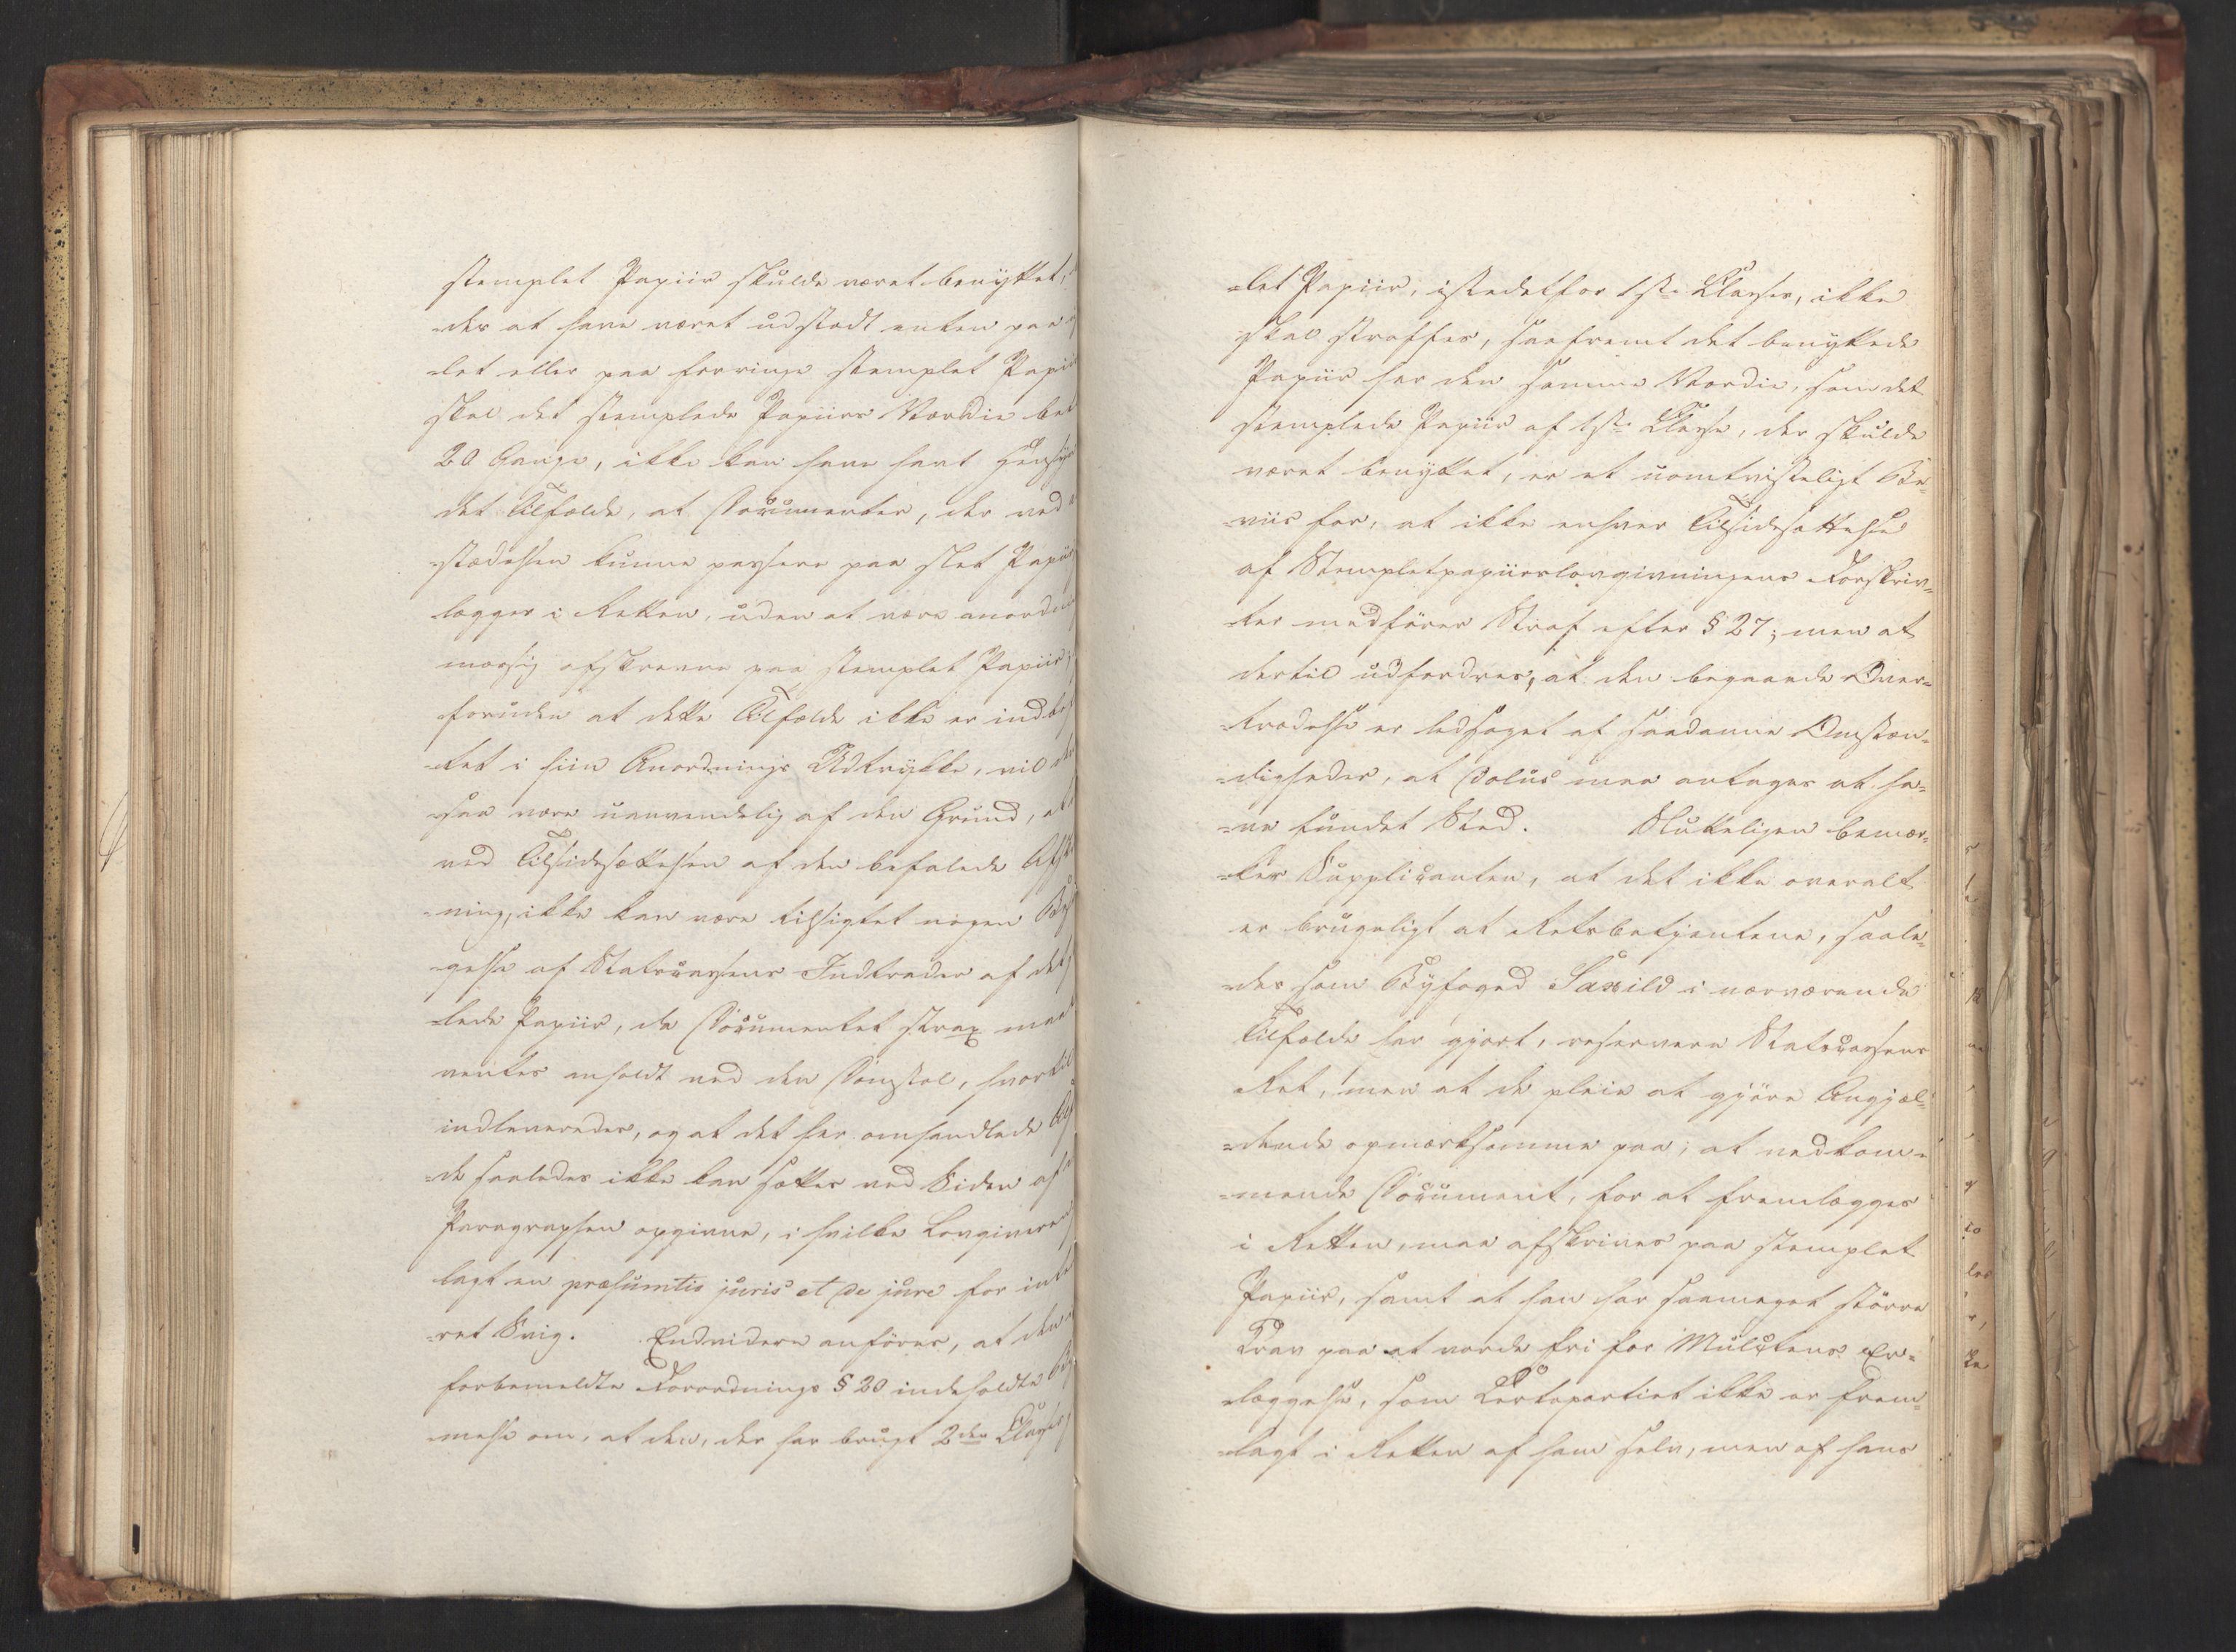 stemplet Papiir skulde været benyttet,
-des at have været udstædt enten paa
-let eller paa forringe stemplet Papiir
skal det stemplede Papiirs Værdie bet
20 Gange, ikke kan have havt Hensyn
det Tilfælde, at Documenter, der ved
-stædelsen kunne passere paa slet Papiir
lægges i Retten, uden at være anordn
mæssig afskrevne paa stemplet Papiir;
foruden at dette Tilfælde ikke er indbe
-tet i hiin Anordnings Udtrykke, vil
-saa være uanvendelig af den Grund, at
ved Tilsidesættelsen af den befalede Afsk
-ning, ikke kan være tilsigtet nogen Be
-gelse af Statscassens Indtrader af det
-lede Papiir, da Documentet strax maa
ventes anholdt ved den Domstol, hvortil
indleveredes, og at det her omhandlede
-de saaledes ikke kan sættes ved Siden af
Paragraphen opgivne, i hvilke Lovgiveren
lagt en præsumtio juris et de jure for inte
-ret Svig. Endvidere anføres, at den
forbemeldte Forordnings § 20 indeholdte Be
-melse om, at den, der har brugt 2den Classes
-let Papiir, istedetfor 1ste Classes, ikke
skal straffes, saafremt det benyttede
Papiir har den samme Værdie, som det
stemplede Papiir af 1ste Classe, der skulde
været benyttet, er et uomtvisteligt Be-
-viis for, at ikke enhver Tilsidesættelse
af Stempletpapiirslovgivningens Forskriv-
-ter medfører Straf efter § 27; men at
dertil udfordres, at den begaaede Over-
-trædelse er ledsaget af saadanne Omstæn-
-digheder, at dolus maa antages at ha-
-ve fundet Sted. Sluttelig­en bemær-
-ker Supplicanten, at det ikke overalt
er brugeligt at Retsbetjentene, saale-
-des som Byfoged Saxild i nærværende
Tilfælde har gjort, reservere Statscassens
Ret, men at de pleie at gjøre Angjæl-
-dende opmærksomme paa, at vedkom-
-mende Document, for at fremlægges
i Retten, maa afskrives paa stemplet
Papiir, samt at han har saameget større
Krav paa at vorde fri for Mulctens Er-
-læggelse, som Certepartiet ikke er frem-
-lagt i Retten af ham selv, men af hans